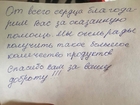 От всего сердца благода-
рим Вас за оказанную
помощь. Мы очень рады
получить такое большое
количество продуктов.
Спасибо вам за вашу
доброту !!!